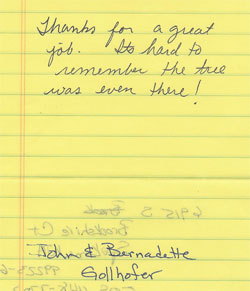 Thanks for a great
job. Its hard to
remember the tree
was even there!
John & Bernadette
Gollhofer